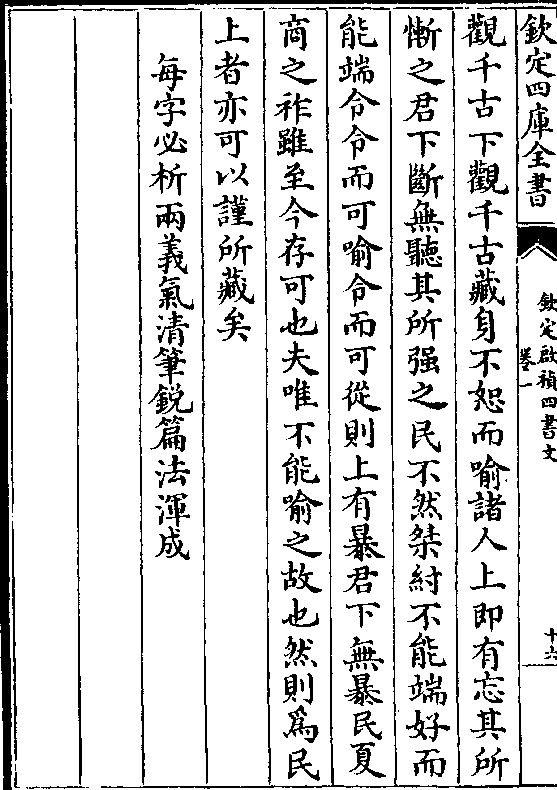 欽定四庫全書
欽定啟禎四書文
卷一
十六
觀千古下觀千古藏身不恕而喻諸人上即有忘其所
慚之君下斷無聽其所强之民不然桀紂不能端好而
能端令令而可喻令而可從則上有暴君下無暴民夏
商之祚雖至今存可也夫唯不能喻之故也然則為民
上者亦可以謹所藏矣
每字必析兩義氣清筆鋭篇法渾成